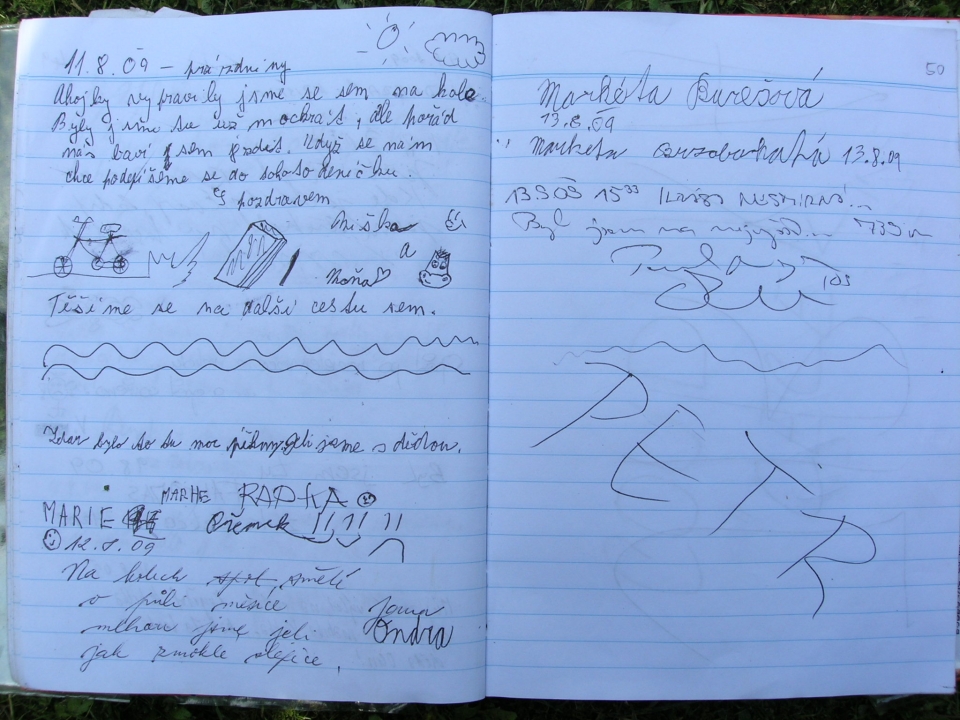 11.8.09 - prázdniny
Ahojky vypravily jsme se sem na kole.
Byly jsme tu už mockrát, ale pořád
nás baví sem jezdit. Když se nám
chce podepíšeme se do tohoto deníčku.
S pozdravem
Niška
a
Moňa
Těšíme se na další cestu sem.
Zdar bylo to tu moc pěkný, jeli jsme s dědou.
MARHE RADKA
MARIE Přemek !! !! !!
12.8.09
Na kolech spol. smětě
v půli měsíce
jsme jeli
jak zmoklé slepice.
Jana
Ondra
50
Markéta Burešová
13.8.09
Marketa 13.8.09
13.8.09 15³³
Byl jsem na 739 m
PETR